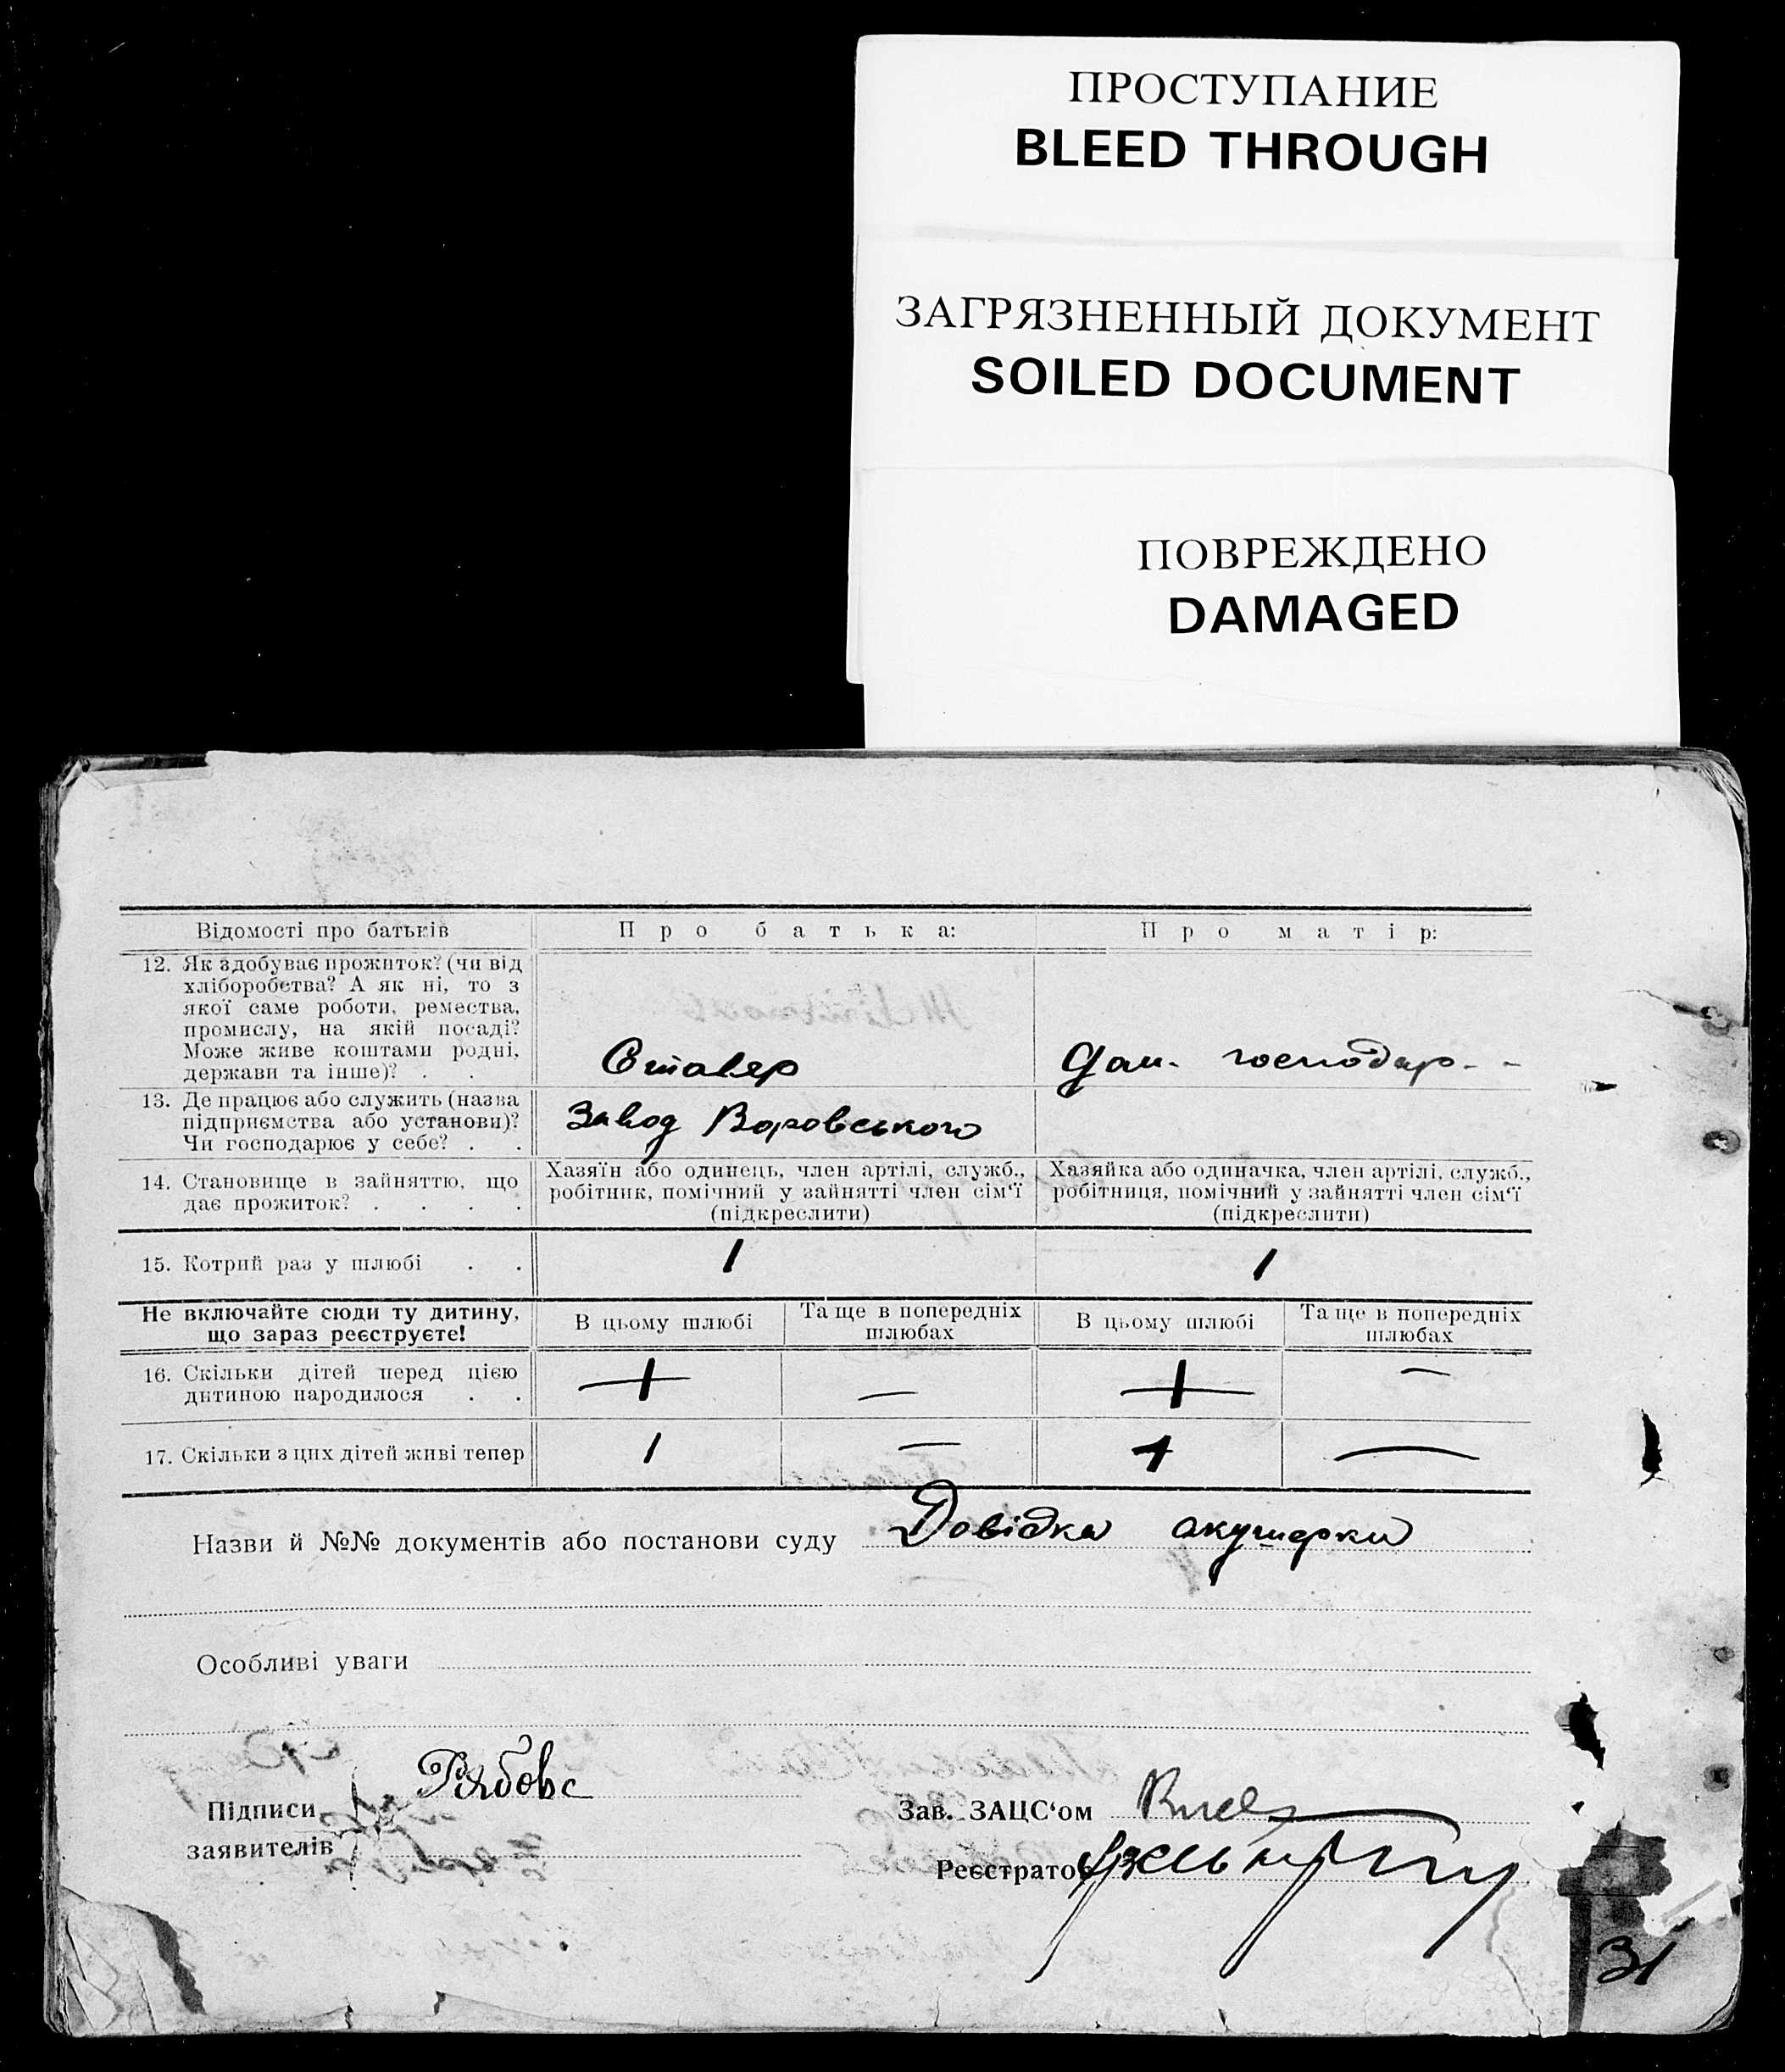 ПРОСТУПАНИЕ
BLEED THROUGH
ЗАГРЯЗНЕННЫЙ ДОКУМЕНТ
SOILED DOCUMENT
ПОВРЕЖДЕНО
DAMAGED
Відомості про батьків
Про батька:
Про матір:
12. Як здобуває прожиток? (чи від
хліборобства? А як ні, то з
якої саме роботи, ремества,
промислу, на якій посаді?
Може живе коштами родні,
держави та інше)? . .
Столяр
Дом. господар--
13. Де працює або служить (назва
підприємства або установи)?
Чи господарює у себе? . .
Завод Воровського
14. Становище в зайняттю, що
дає прожиток? . . . .
Хазяїн або одинець, член артілі, служб.,
робітник, помічний у зайнятті член сім‘ї
(підкреслити)
Хазяйка або одиначка, член артілі, служб.,
робітниця, помічний у зайнятті член сім‘ї
(підкреслити)
15. Котрий раз у шлюбі . .
1
1
Не включайте сюди ту дитину,
що зараз реєструєте!
В цьому шлюбі
Та ще в попередніх
шлюбах
В цьому шлюбі
Та ще в попередніх
шлюбах
16. Скільки дітей перед цією
дитиною народилося . .
1
—
1
—
17. Скільки з цих дітей живі тепер
1
—
1
—
Назви й №№ документів або постанови суду Довідка акушерки
Особливі уваги
Підписи
заявителів
Рябова
Зав. ЗАЦС‘ом
Реєстратор
31